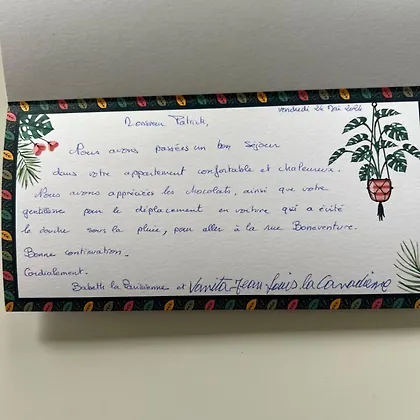 vendredi 24 Mai 2024
Monsieur Patrick,
Nous avons passées un bon séjour
dans votre appartement confortable et chaleureux.
Nous avons appréciées les chocolats, ainsi que votre
gentillesse pour le déplacement en voiture qui a évité
la douche sous la pluie, pour aller à la rue Bonaventure.
Bonne continuation.
Cordialement.
Babeth la Parisienne et Vanita-Jean Louis la Canadienne